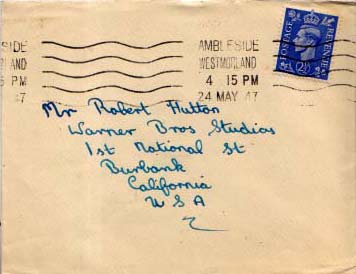 SIDE
AMBLESIDE
WESTMORLAND
4 15 PM
24 MAY 47
POSTAGE
REVENUE
2½
Mr Robert Hutton
Warner Bros Studios
1st National St
Burbank
California
U S A